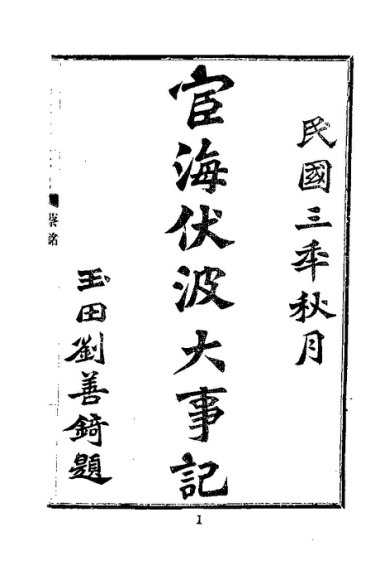 民國三年秋月
宦海伏波大事記
玉田劉善錡題
蔡銘
1